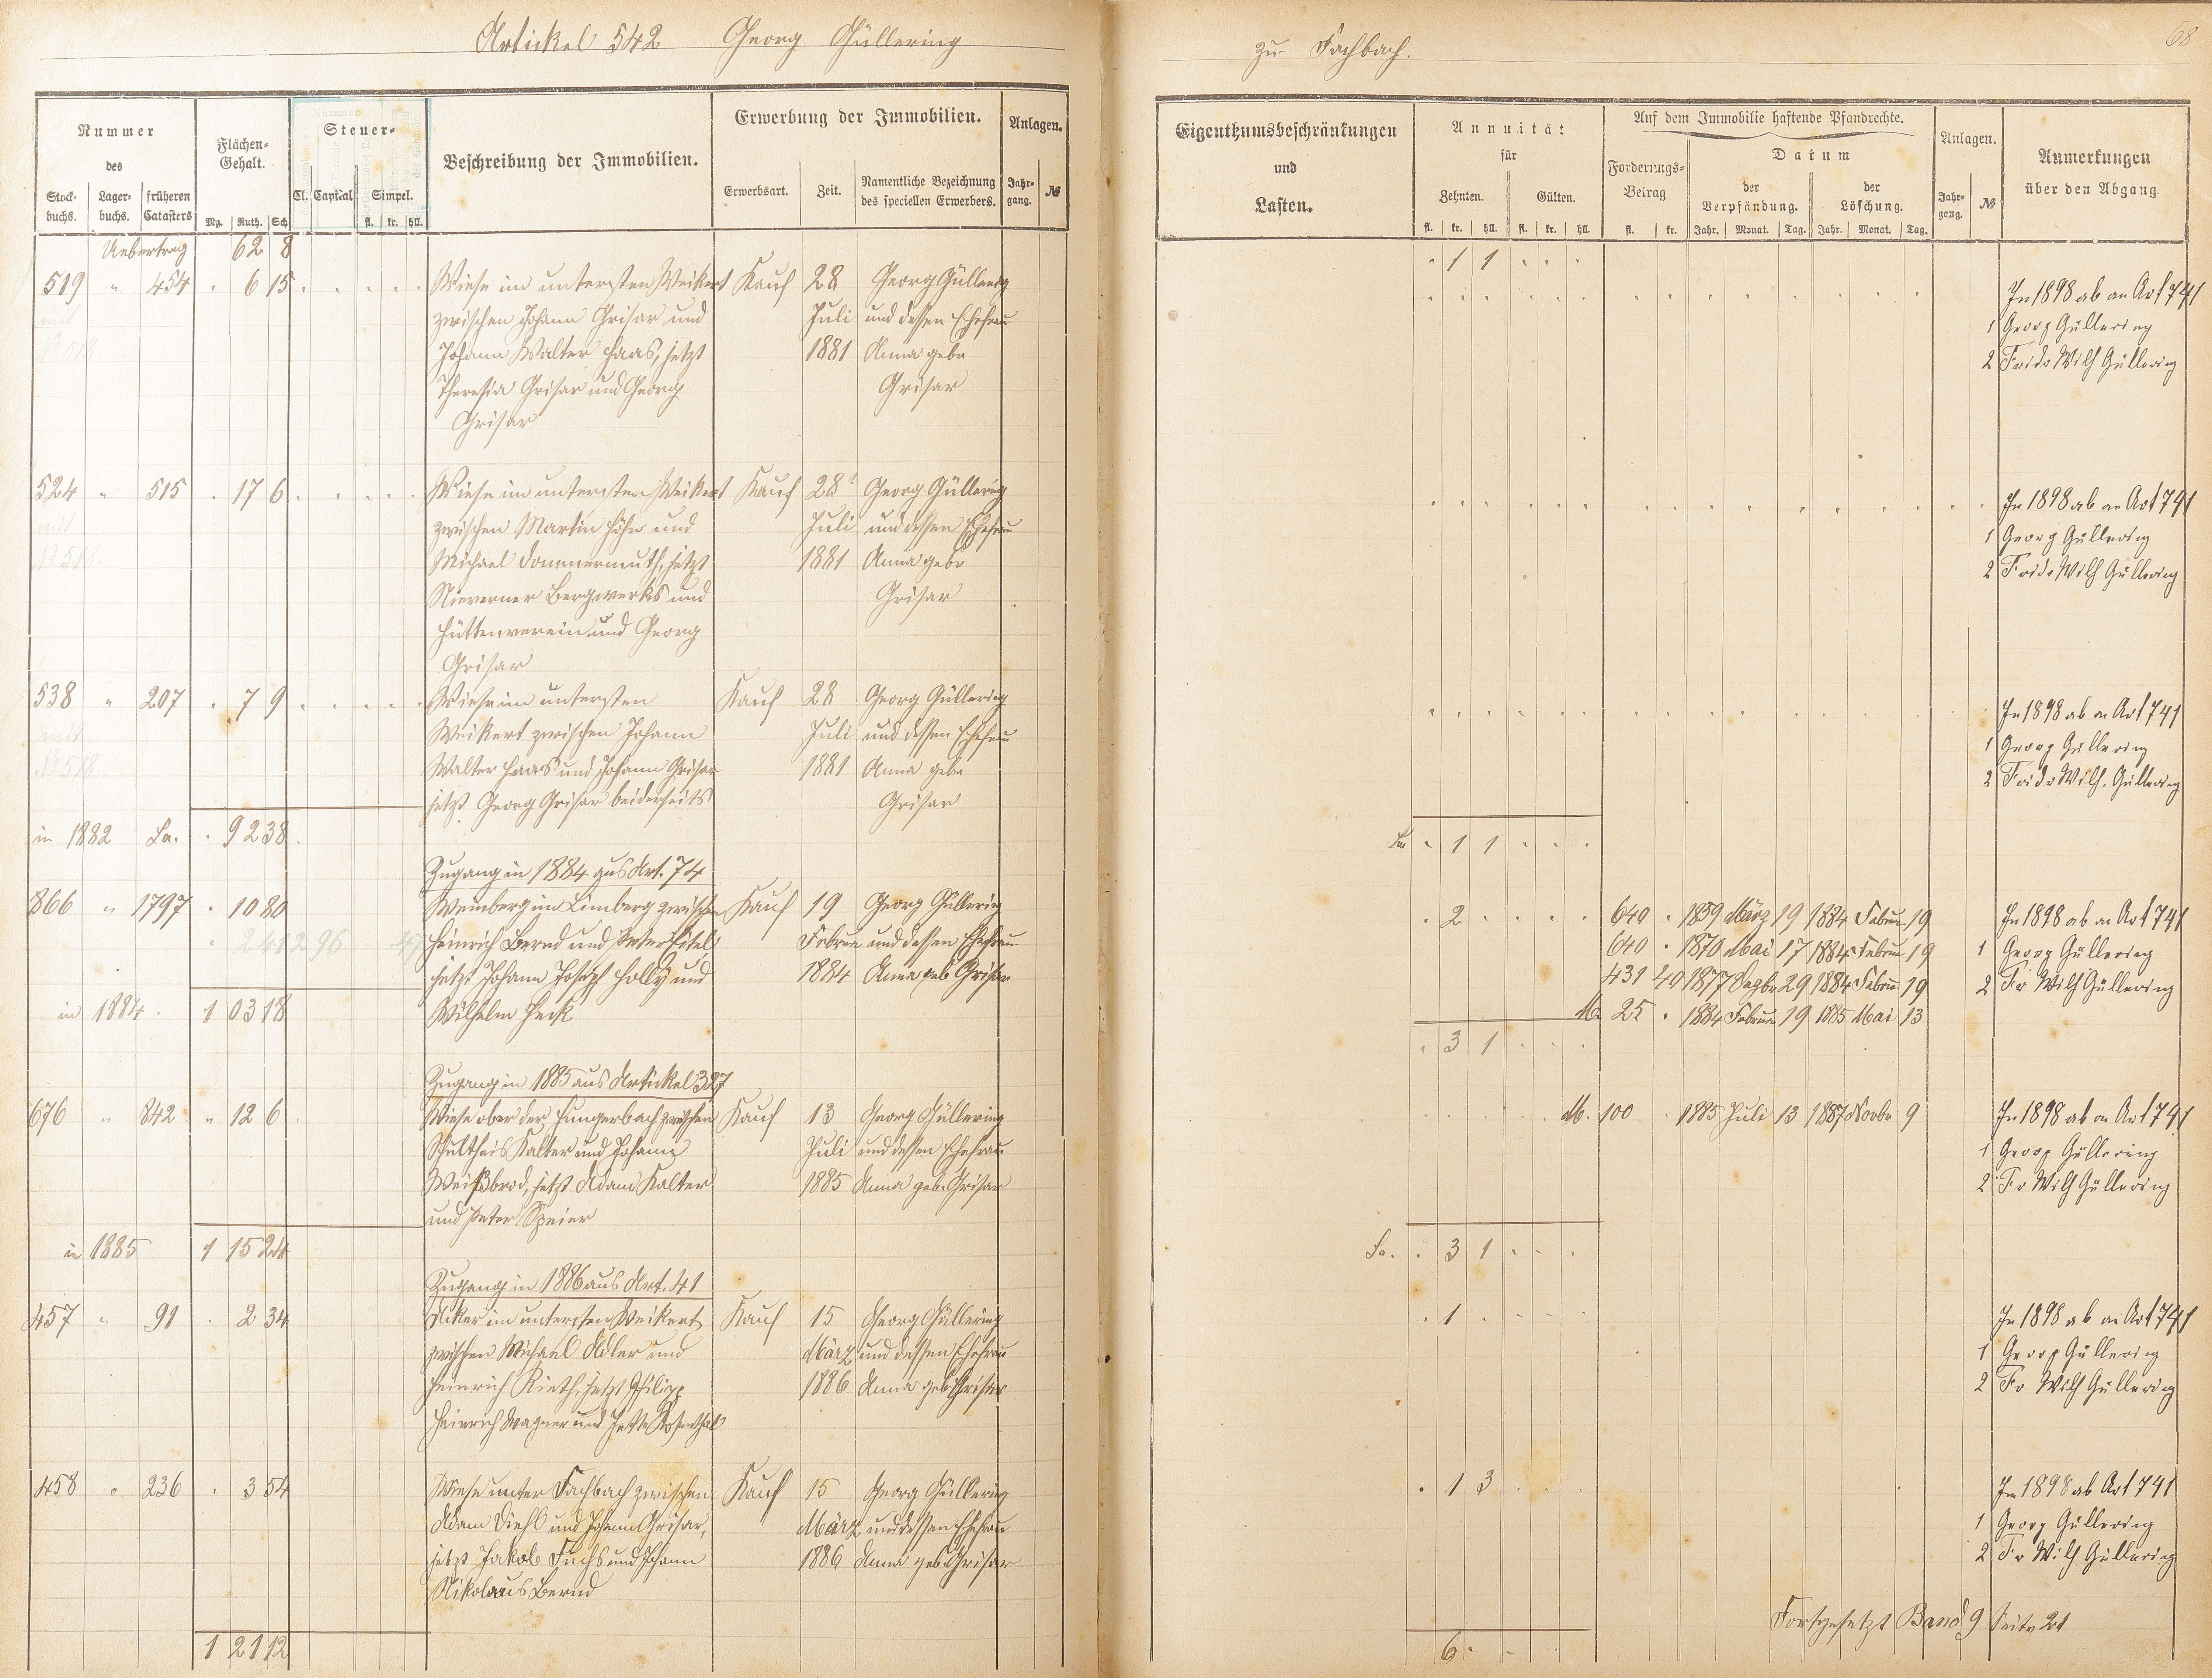 Artickel 542 Georg Güllering
zu Fachbach.
68
Nummer
des
Stock-
buchs.
Lager-
buchs.
früheren
Catasters
Flächen-
Gehalt.
Mg. Ruth. Sch
Steuer-
Cl. Capital Simpel.
fl. kr. hll.
Beschreibung der Immobilien.
Erwerbung der Immobilien.
Erwerbsart. Zeit. Namentliche Bezeichnung
des speciellen Erwerbers.
Anlagen.
Jahr-
gang. №
Eigenthumsbeschränkungen
und
Lasten.
Annuität
für
Zehnten. Gülten.
fl. kr. hll. fl. kr. hll.
Auf dem Immobilie haftende Pfandrechte.
Forderungs-
Betrag
fl. kr.
Datum
der
Verpfändung.
der
Löschung.
Jahr. Monat. Tag. Jahr. Monat. Tag.
Anlagen.
Jahr-
gang. №
Anmerkungen
über den Abgang
Uebertrag 62 8 1 1
519 " 454 . 6 15 Wiese im untersten Weikert Kauf 28 Georg Güllering In 1898 ab an Art 741
mit zwischen Johann Grisar und Juli und dessen Ehefrau 1 Georg Güllering
No 518 Johann Walter Haas, jetzt 1881 Anna gebr 2 Fridr Wilh Güllering
Theresia Grisar und Georg Grisar
Grisar
524 " 515 . 17 6 Wiese im untersten Weikert Kauf 28t Georg Güllering In 1898 ab an Art 741
mit zwischen Martin Höhn und Juli und dessen Ehefrau 1 Georg Güllering
No 518. Michael Dommermuth, jetzt 1881 Anna gebr 2 Fridr Wilh Güllering
Nieverner Bergwerks und Grisar
Hüttenverein und Georg
Grisar
538 " 207 . 7 9 Wiese im untersten Kauf 28 Georg Güllering In 1898 ab an Art 741
mit Weikert zwischen Johann Juli und dessen Ehefrau 1 Georg Güllering
No 518. Walter Haas und Johann Grisar 1881 Anna gebr 2 Fridr Wilh. Güllering
jetzt Georg Grisar beiderseits Grisar
in 1882 Sa. . 92 38 Sa . 1 1
Zugang in 1884 aus Art. 74
866 " 1797 . 10 80 Weinberg im Limberg zwischen Kauf 19 Georg Güllering . 2 640 . 1859 März 19 1884 Februar 19 In 1898 ab an Art 741
Heinrich Bernd und Peter Eitel Februar und dessen Ehefrau 640 . 1870 Mai 17 1884 Februar 19 1 Georg Güllering
jetzt Johann Joseph Holly und 1884 Anna geb Grisar 431 40 1877 Dezbr 29 1884 Februar 19 2 Fr Wilh Güllering
in 1884. 1 03 18 Wilhelm Heck M. 25 . 1884 Februar 19 1885 Mai 13
. 3 1
Zugang in 1885 aus Artickel 327
676 " 842 " 12 6 Wiese ober der Hungerbach zwischen Kauf 13 Georg Güllering M. 100 1885 Juli 13 1887 Novbr 9 In 1898 ab an Art 741
Schultheis Kalter und Johann Juli und dessen Ehefrau 1 Georg Güllering
Weißbrod, jetzt Adam Kalter 1885 Anna geb. Grisar 2 Fr Wilh Güllering
und Peter Speier
in 1885 1 15 24 Sa. . 3 1
Zugang in 1886 aus Art. 41
457 " 91 . 2 34 Acker im untersten Weikert Kauf 15 Georg Güllering . 1 In 1898 ab an Art 741
zwischen Michael Adler und März und dessen Ehefrau 1 Georg Güllering
Heinrich Rieth, jetzt Philipp 1886 Anna geb. Grisar 2 Fr Wilh Güllering
Heinrich Wagner und Jette Rosenthal
458 " 236 . 3 54 Wiese unter Fachbach zwischen Kauf 15 Georg Güllering . 1 3 In 1898 ab Art 741
Adam Diehl und Johann Grisar, März und dessen Ehefrau 1 Georg Güllering
jetzt Jakob Fuchs und Johann 1886 Anna geb. Grisar 2 Fr Wilh Güllering
Nikolaus Bernd
Fortgesetzt Band 9 Seite 21
1 21 12 6